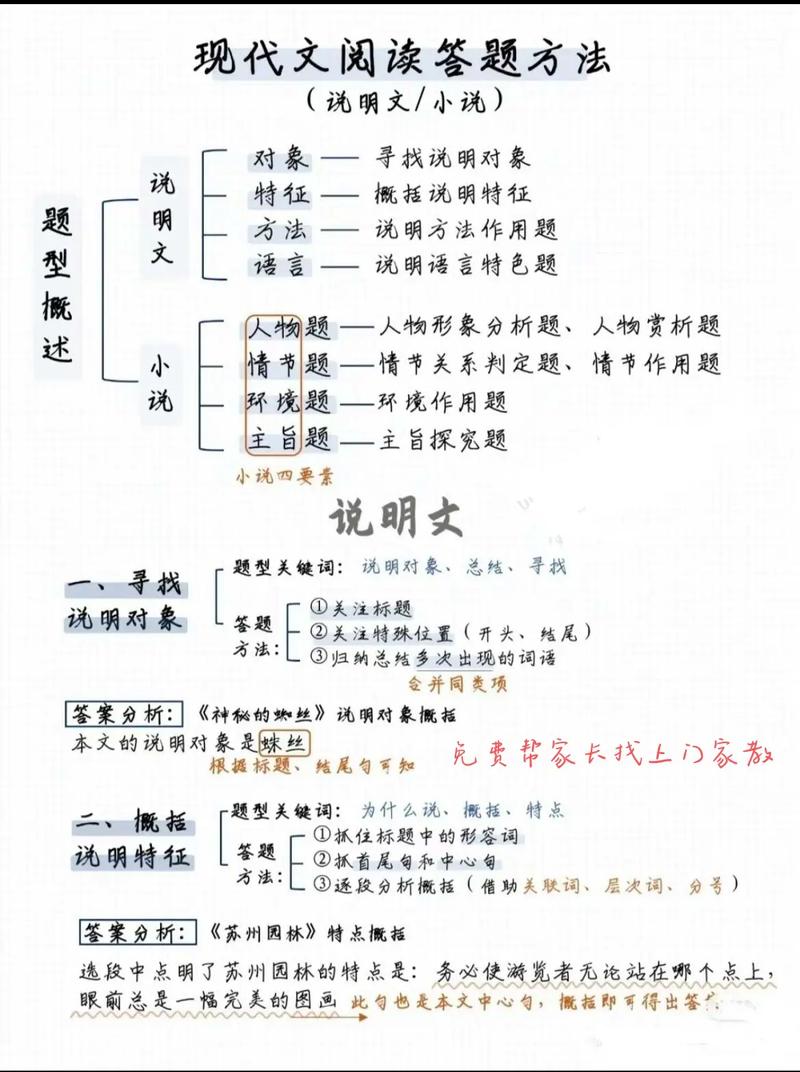 现代文阅读答题方法
（说明文/小说）
题型概述
说明文
对象——寻找说明对象
特征——概括说明特征
方法——说明方法作用题
语言——说明语言特色题
小说
人物题——人物形象分析题、人物赏析题
情节题——情节关系判定题、情节作用题
环境题——环境作用题
主旨题——主旨探究题
小说四要素
说明文
一、寻找
说明对象
题型关键词：说明对象、总结、寻找
答题
方法：
①关注标题
②关注特殊位置（开头、结尾）
③归纳总结多次出现的词语
合并同类项
答案分析：《神秘的蜘丝》说明对象概括
本文的说明对象是蛛丝
根据标题、结尾句可知
免费帮家长找上门家教
二、概括
说明特征
题型关键词：为什么说、概括、特点
答题
方法：
①抓住标题中的形容词
②抓首尾句和中心句
③逐段分析概括（借助关联词、层次词、分号）
答案分析：《苏州园林》特点概括
选段中点明了苏州园林的特点是：务必使游览者无论站在哪个点上，
眼前总是一幅完美的图画 此句也是本文中心句，概括即可得出答